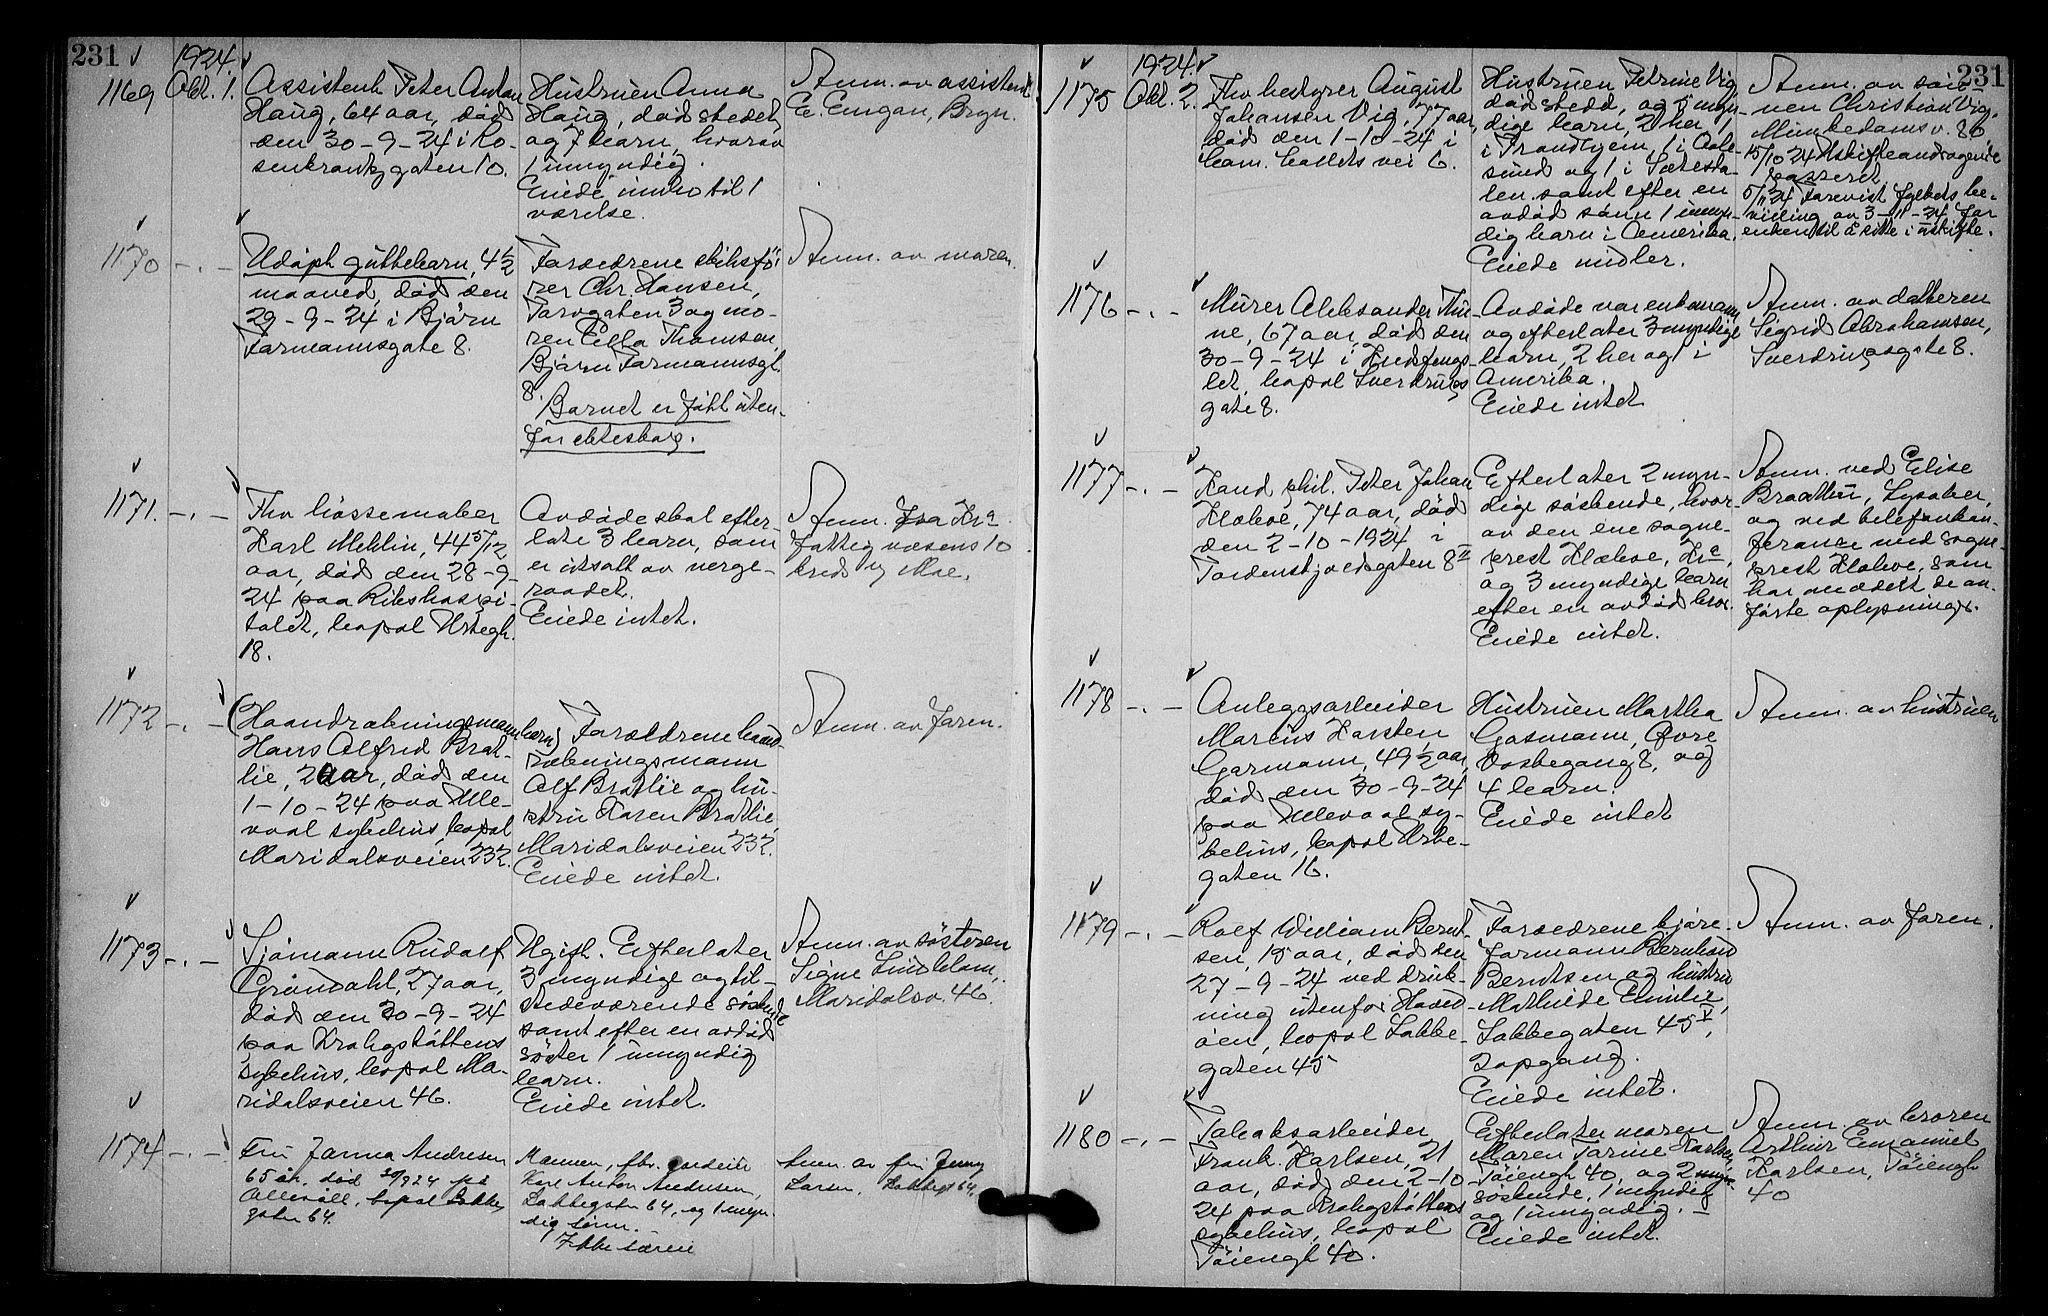 231
1924.
1169 Okt. 1.
Assistent Peter Anton
Haug, 64 aar, død
den 30-9-24 i Ro-
senkrantzgaten 10.
Hustruen Anna
Haug, dødsstedet,
og 7 barn, hvorav
1 umyndig.
Eiede innbo til 1
værelse.
Anm. av assistent
E. Engan, Bryn.
1170 -.-
Udøpt guttebarn, 4½
maaned, død den
29-9-24 i Bjørn
Farmannsgate 8.
Forældrene skibsfø-
rer Chr. Hansen,
Torvgaten 3 og mo-
ren Ella Thomsen,
Bjørn Farmannsgt.
8.
Barnet er født uten-
for ekteskap.
Anm. av moren.
1171. -.-
Fhv børstemaker
Karl Mehlin, 44 5/12
aar, død den 28-9-
24 paa Rikshospi-
talet, bopæl Urtegt.
18.
Avdøde skal efter-
late 3 barn, som
er utsatt av verge-
raadet.
Eiede intet.
Anm. fra Kra
Fattigvæsens 10
kreds v/ Moe.
1172 -.-
(Haandrækningsmann barn)
Hans Alfred Brat-
lie, 2 aar, død den
1-10-24 paa Ulle-
vaal sykehus, bopæl
Maridalsveien 232.
Forældrene haand-
rækningsmann
Alf Bratlie og hu-
stru Karen Bratlie,
Maridalsveien 232.
Eiede intet.
Anm. av faren.
1173 -.-
Sjømann Rudolf
Grøndahl, 27 aar,
død den 30-9-24
paa Krohgstøttens
sykehus, bopæl Ma-
ridalsveien 46.
Ugift. Efterlater
3 myndige og til-
stedeværende søskende
samt efter en avdød
søster 1 umyndig
barn.
Eiede intet.
Anm. av søsteren
Signe Lindblom,
Maridalsv. 46.
1174 -.-
Fru Janna Andresen
65 år, død 30/9 24 på
Ullevåll, bopæl Lakke
gaten 64.
Mannen, fhv.
Karl Anton Andresen,
Lakkegaten 64, og 1 myn-
dig sønn.
Anm. av fru Jenny
Larsen, Lakkegt 64.
231
1924.
1175 Okt. 2.
Fhv bestyrer August
Johansen Vig, 77 aar,
død den 1-10-24 i
Colletts vei 6.
Hustruen Petrine Vig,
dødssted, og 5 myn-
dige barn, 2 her, 1
i Trondhjem, 1 i Aale-
sund og 1 i Sætesda-
len samt efter en
avdød sønn 1 umyn-
dig barn i Amerika.
Eiede midler.
Anm. av søn-
nen Christian Vig,
Munkedamsv. 86
15/10 24 Uskifteandragende
passeret.
5/11 24 Forevist fylkets be-
villing av 3-11-24 for
enken til å sitte i uskifte.
1176 -.-
Murer Aleksander Thu-
ne, 67 aar, død den
30-9-24 i Huk
bopæl Sverdrups
gate 8.
Avdøde var enkemann
og efterlater 3 myndige
barn, 2 her og 1 i
Amerika.
Eiede intet
Anm. av datteren
Sigrid Abrahamsen,
Sverdrupsgate 8.
1177 -.-
Kand. phil. Peter Johan
Klæboe, 74 aar, død
den 2-10-1924 i
Tordenskjoldsgaten 8 II
Efterlater 2 myn-
dige søskende, hvor-
av den ene sogne-
prest Klæboe, Kra,
og 3 myndige barn
efter en avdød bror.
Eiede intet.
Anm. ved Elise
Braathu, Lysaker,
og ved telefonkon-
ferance med sogne-
prest Klæboe, som
har meddelt de an-
førte oplysninger.
1178 -.-
Anleggsarbeider
Marius Karsten
Garmann, 49½ aar,
død den 30-9-24
paa Ullevaal sy-
kehus, bopæl Urte-
gaten 16.
Hustruen Martha
Gasmann, Øvre
Vossegang 8, og
4 barn.
Eiede intet
Anm. av hustruen
1179 -.-
Rolf William Bernt-
sen, 15 aar, død den
27-9-24 ved druk-
ning utenfor Hoved-
øen, bopæl Lakke-
gaten 45
Forældrene kjøre-
formann Bernhard
Berntsen og hustru
Mathilde Emilie,
Lakkegaten 45 V,
2 opgang.
Eiede intet.
Anm. av faren.
1180 -.-
Tobaksarbeider
Frank Karlsen, 21
aar, død den 2-10-
24 paa Krohgstøttens
sykehus, bopæl
Tøiengt 40.
Efterlater moren
Maren Torine Karlsen,
Tøiengt 40, og 2
søskende, 1 myndig
og 1 umyndig. -
Eiede intet.
Anm. av broren
Arthur Emanuel
Karlsen, Tøiengt
40